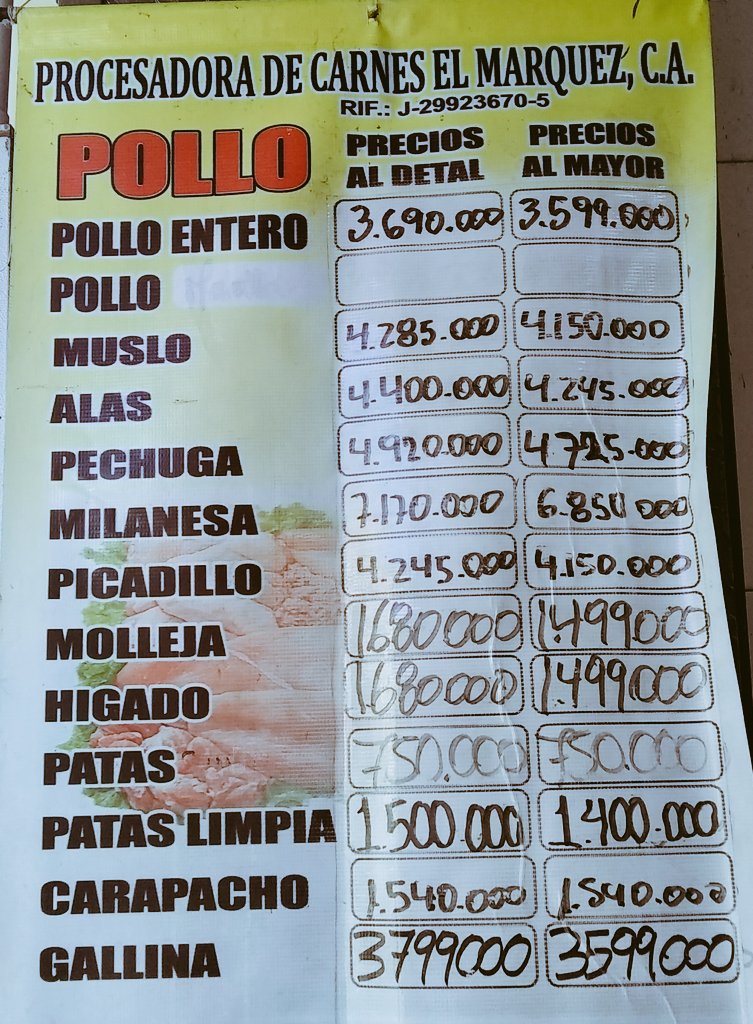 PROCESADORA DE CARNES EL MARQUEZ, C.A.
RIF.: J-29923670-5
POLLO PRECIOS AL DETAL PRECIOS AL MAYOR
POLLO ENTERO 3.690.000 3.599.000
POLLO
MUSLO 4.285.000 4.150.000
ALAS 4.400.000 4.245.000
PECHUGA 4.920.000 4.725.000
MILANESA 7.170.000 6.850 000
PICADILLO 4.245.000 4.150.000
MOLLEJA 1680000 1.499000
HIGADO 1680000 1.499000
PATAS 750.000 750.000
PATAS LIMPIA 1.500.000 1.400.000
CARAPACHO 1.540.000 1.540.000
GALLINA 3799000 3599000